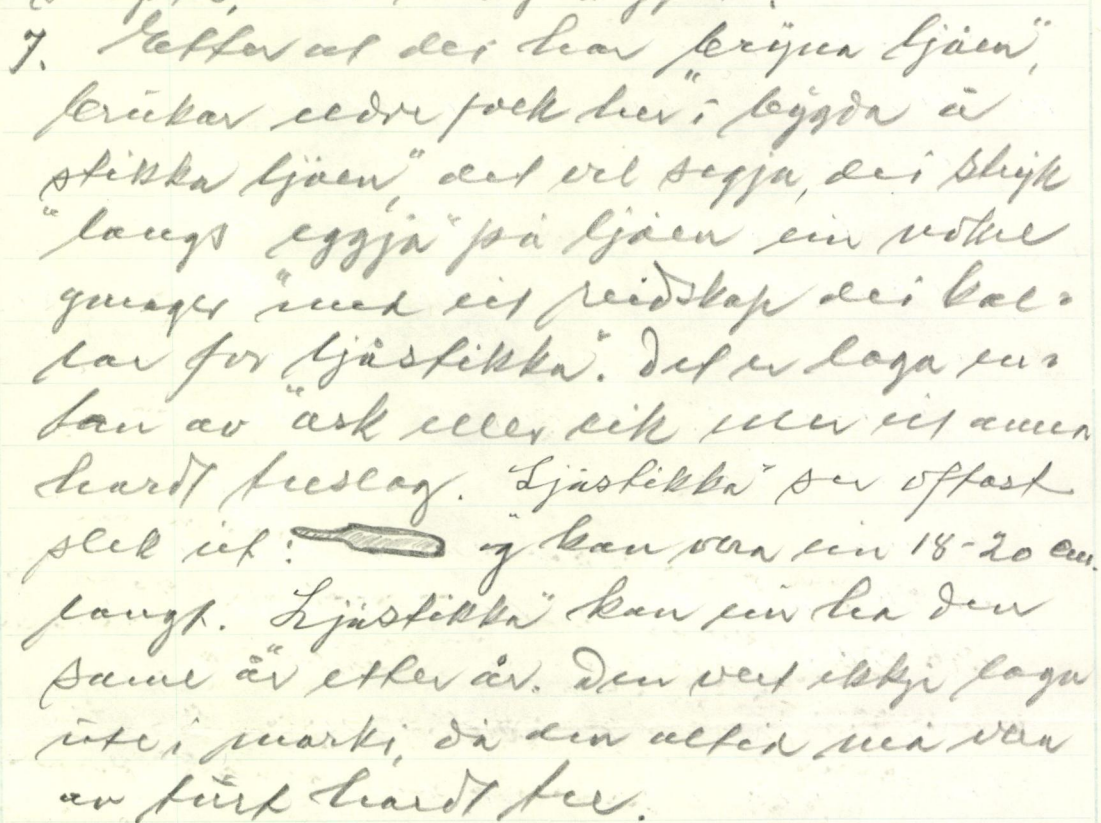 7. Etter at dei har brýna ljåen",
brúkar eldre folk her i býgda å
"stikka ljåen", det vil segja, dei strýk
"langs eggja" på ljåen ein nokre
gonger med eit reidskap dei kal=
lar for "ljåstikka". Det er laga en=
tan av ask eller eik eller eit anna
hardt treslag. "Ljåstikka" ser oftast
slik út: og kan vera ein 18-20 cm.
langt. "Ljåstikka" kan ein ha den
same år etter år. Den vert ikkje laga
úte i marki, då den altid må vera
av túrt hardt tre.